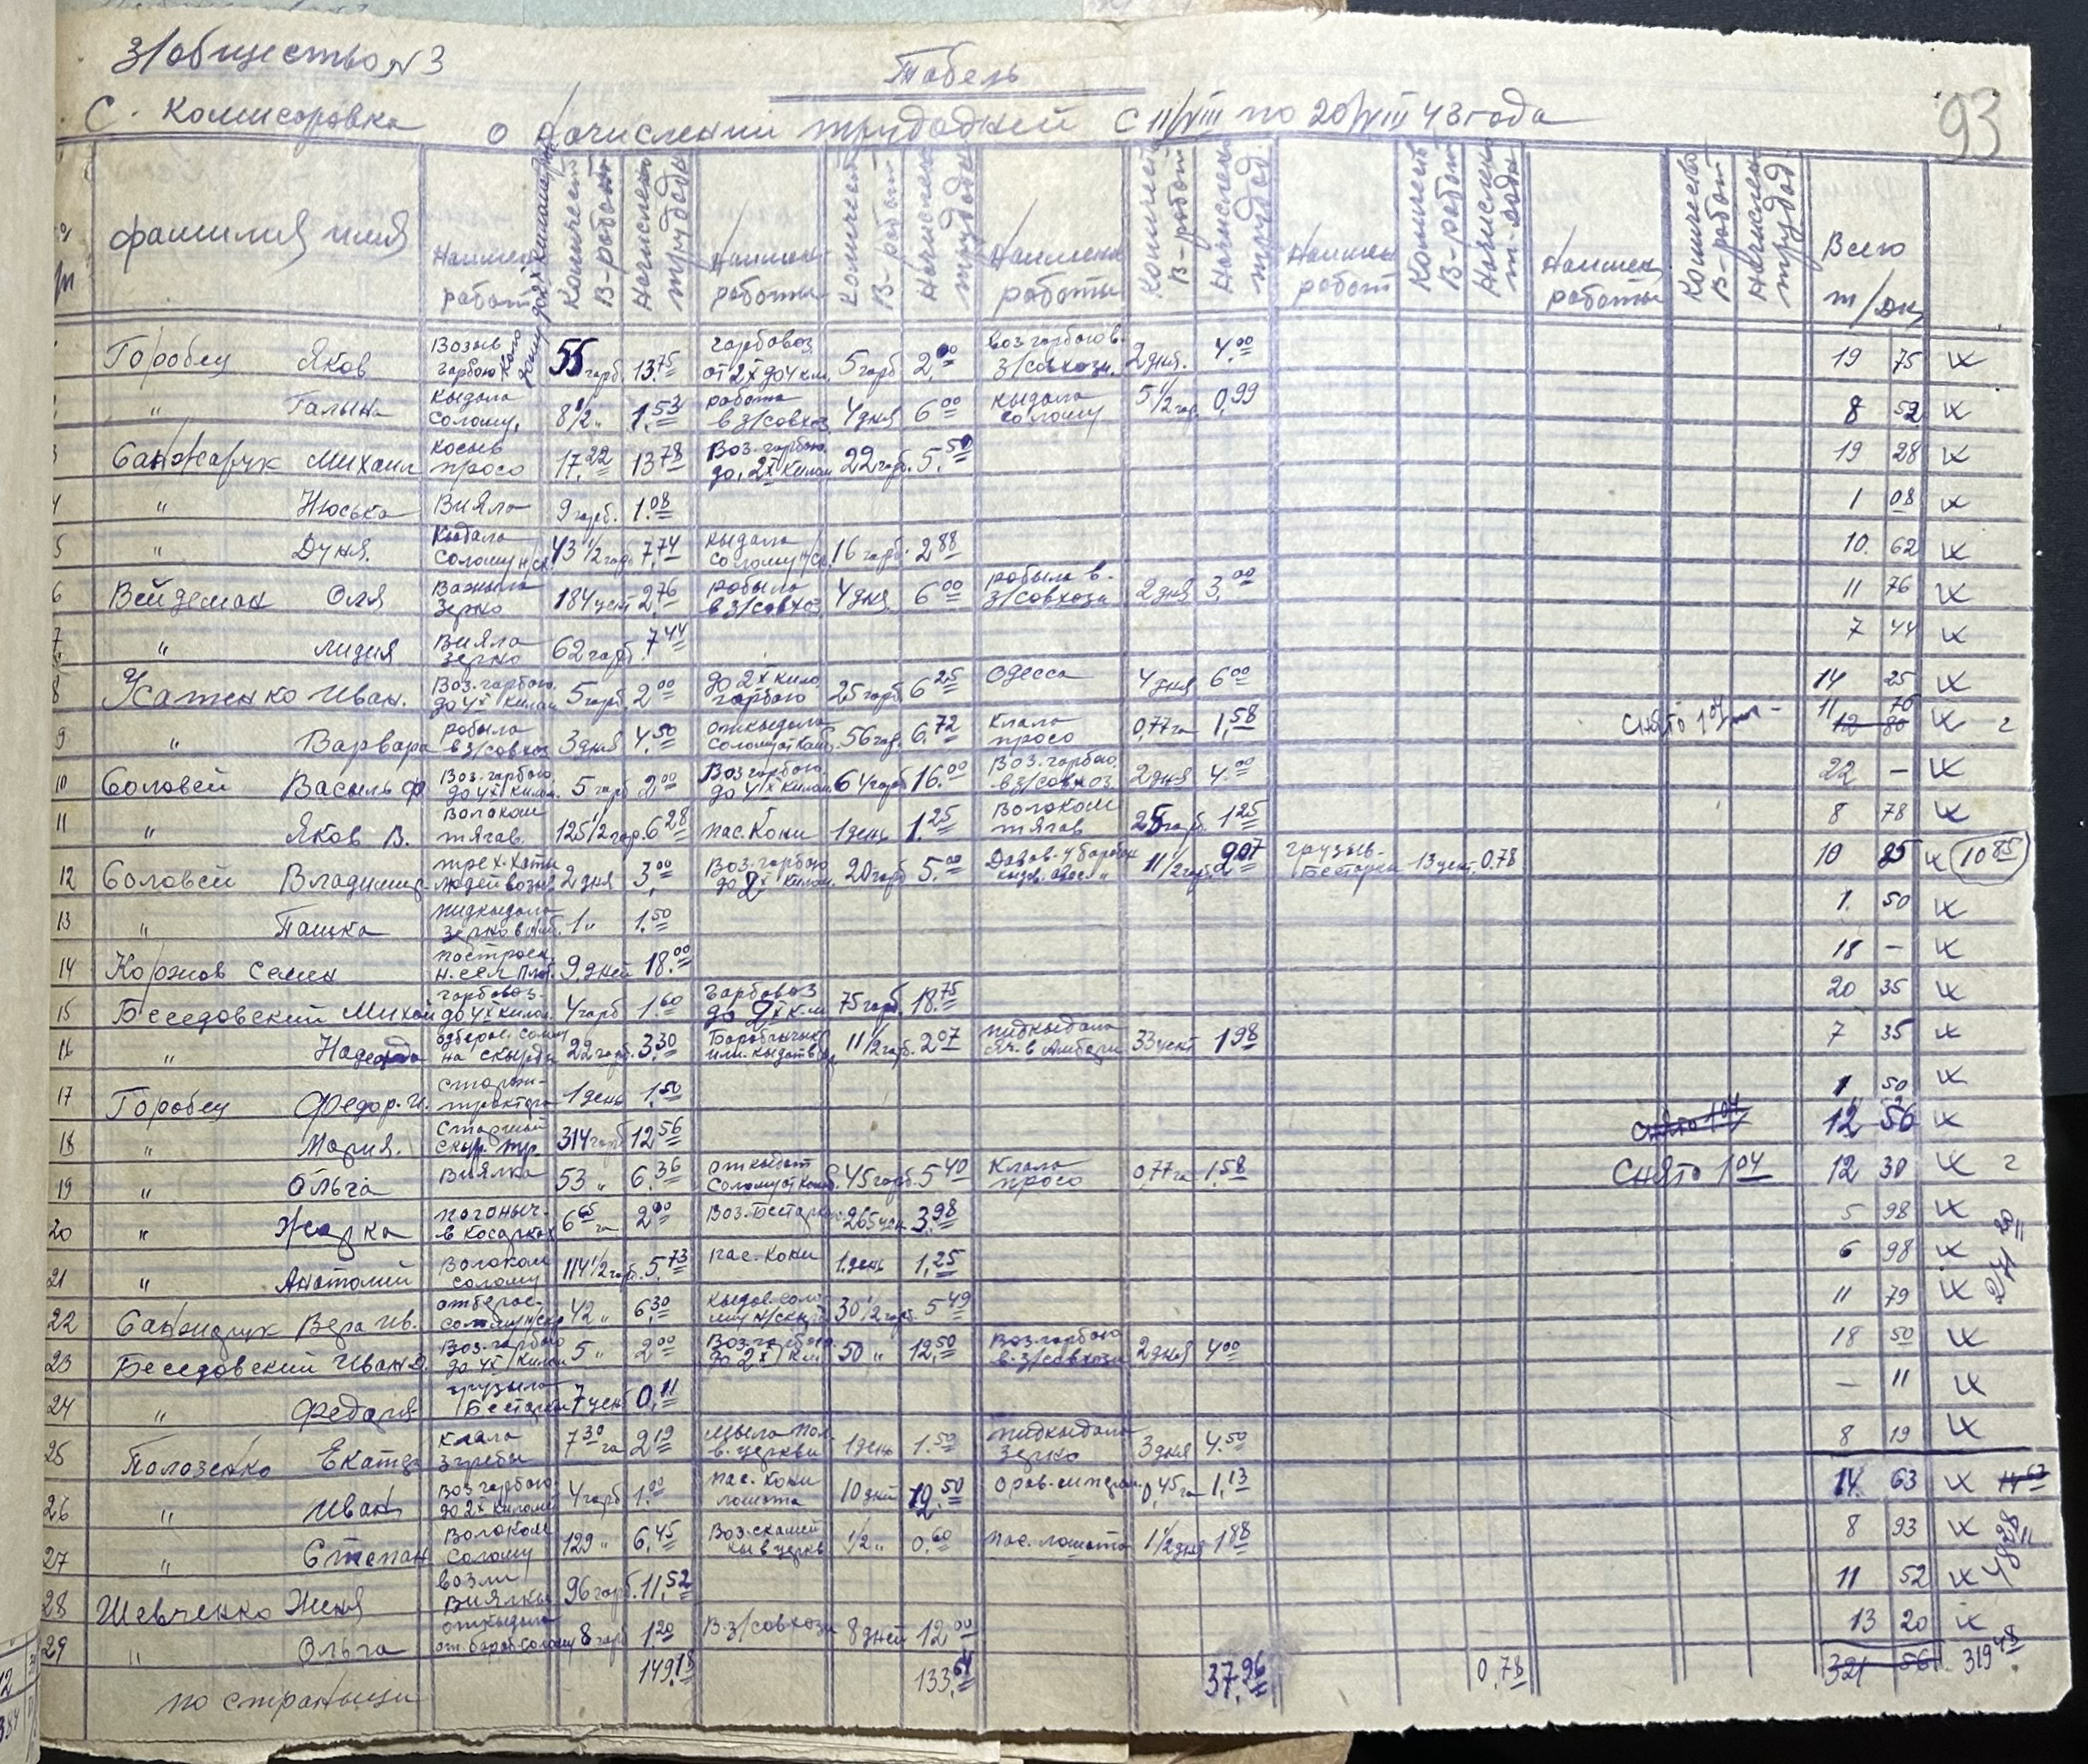 З/общество № 3
Табель
С. Комисаровка о начислении трудодней с 11/VIII по 20/VIII 43 года
93
Фамилия имя Наимен работ Количест В-работ Начислен трудодн Наимен работы Количест В-работ Начислен трудодн Наимен работы Количест В-работ Начислен трудод. Наимен работ Количест В-работ Начислен т-одн Наимен работы Количеств В-работ Начислен трудод Всего т/дн
Горобец Яков Возыв гарбою 55 гарб. 13.75 гарбовоз от 2х до 4 км. 5 гарб 2.00 воз гарбою в з/совхозе. 2 дня. 4.00 19 75
" Галына кыдала солому, 8 1/2 " 1.53 работа в з/совхоз 4 дня 6.00 кыдала солому 5 1/2 гар. 0.99 8 52
Санжарук Михаил косыв просо 17.22 13.78 Воз. гарбою до 2х килом 22 гарб. 5.50 19 28
4 " Нюська Вияла 9 гарб. 1.08 1 08
5 " Дуня. Кыдала солому н/ск. 43 1/2 гарб 7.74 кыдала солому н/ск. 16 гарб. 2.88 10. 62
6 Вейдеман Оля Важила зерно 184 цент 2.76 робыла в з/совхоз 4 дня 6.00 робыла в з/совхозе 2 дня 3.00 11 76
7 " лидия Вияла зерно 62 гарб. 7.44 7 44
8 Усатенко Иван. Воз. гарбою до 4х килом 5 гарб. 2.00 до 2х кило гарбою 25 гарб 6.25 Одесса 4 дня 6.00 14 25
9 " Варвара робыла в з/совхоз 3 дня 4.50 откыдала солому от комб. 56 гар. 6.72 Клала просо 0,77 га 1.58 снято 1.04 11 76 12 80 2
10 Соловей Васыль Ф Воз. гарбою до 4х килом. 5 гарб 2.00 Воз гарбою до 2х килом 64 гарб 16.00 Воз. гарбою в з/совхоз 2 дня 4.00 22 –
11 " Яков В. Волоком тягав. 125 1/2 гар. 6.28 пас. Кони 1 день 1.25 Волоком тягав 25 гарб. 1.25 8 78
12 Соловей Владимир людей возыв 2 дня 3.00 Воз. гарбою до 2х килом. 20 гарб 5.00 11 1/2 гарб. 2.07 грузыв- Бестарка 13 цент. 0.78 10 85 10 85
13 " Пашка пидкыдала зерно 1 " 1.50 1. 50
14 Коржов Семен построен. 9 дней 18.00 18 –
15 Беседовский Михаил гарбовоз- до 4х килом. 4 гарб 1.60 Гарбовоз до 2х к.м 75 гарб. 18.75 20 35
16 " Надежда одберае. солому на скырди 22 гарб. 3.30 11 1/2 гарб. 2.07 пидкыдала в Амбари 33 цент 1.98 7 35
17 Горобец Федор. И. сторож- трактора 1 день 1.50 1 50
18 " Мария. 314 гарб 12.56 снято 1.04 12 56
19 " Ольга Виялка 53 " 6.36 откыдат солому от комб. 45 гарб. 5.40 Клала просо 0,77 га 1.58 снято 1.04 12 30 2
20 " погоныч- в косарках 6.65 га 2.00 Воз. Бестаркою 265 цен 3.98 5 98
21 " Анатолий Волоком солому 114 1/2 гарб. 5.73 пас. Кони 1. день 1.25 6 98
22 Санжарук Вера Ив. отберае- солому н/скр 42 " 6.30 кыдав. соло- му н/скырд 30 1/2 гарб. 5.49 11 79
23 Беседовский Иван Д. Воз. гарбою до 4х килом 5 " 2.00 Воз. гарбою до 2х км. 50 " 12.50 Воз. гарбою в з/совхозе 2 дня 4.00 18 50
24 " Федора грузыла Бестарка 7 цен 0.11 – 11
25 Полозенко Екатер клала згребы 7.30 га 2.19 мыла пол в. церкви 1 день 1.50 пидкыдала зерно 3 дня 4.50 8 19
26 " Иван Воз гарбою до 2х килом 4 гарб 1.00 пас. Кони лошата 10 дней 12.50 0,45 га 1.13 14. 63 14 63
27 " Степан Волоком солому 129 " 6.45 Воз. скамей- кы в церкв 1/2 " 0.60 пас. лошата 1 1/2 дня 1.88 8 93
28 Шевченко Женя возли виялкы 96 гарб. 11.52 11 52
29 " Ольга откыдала от. бараб. солому 8 гарб 1.20 В з/совхозе 8 дней 12.00 13 20
по страници 149.18 133.64 37.96 0.78 321 56 319.48